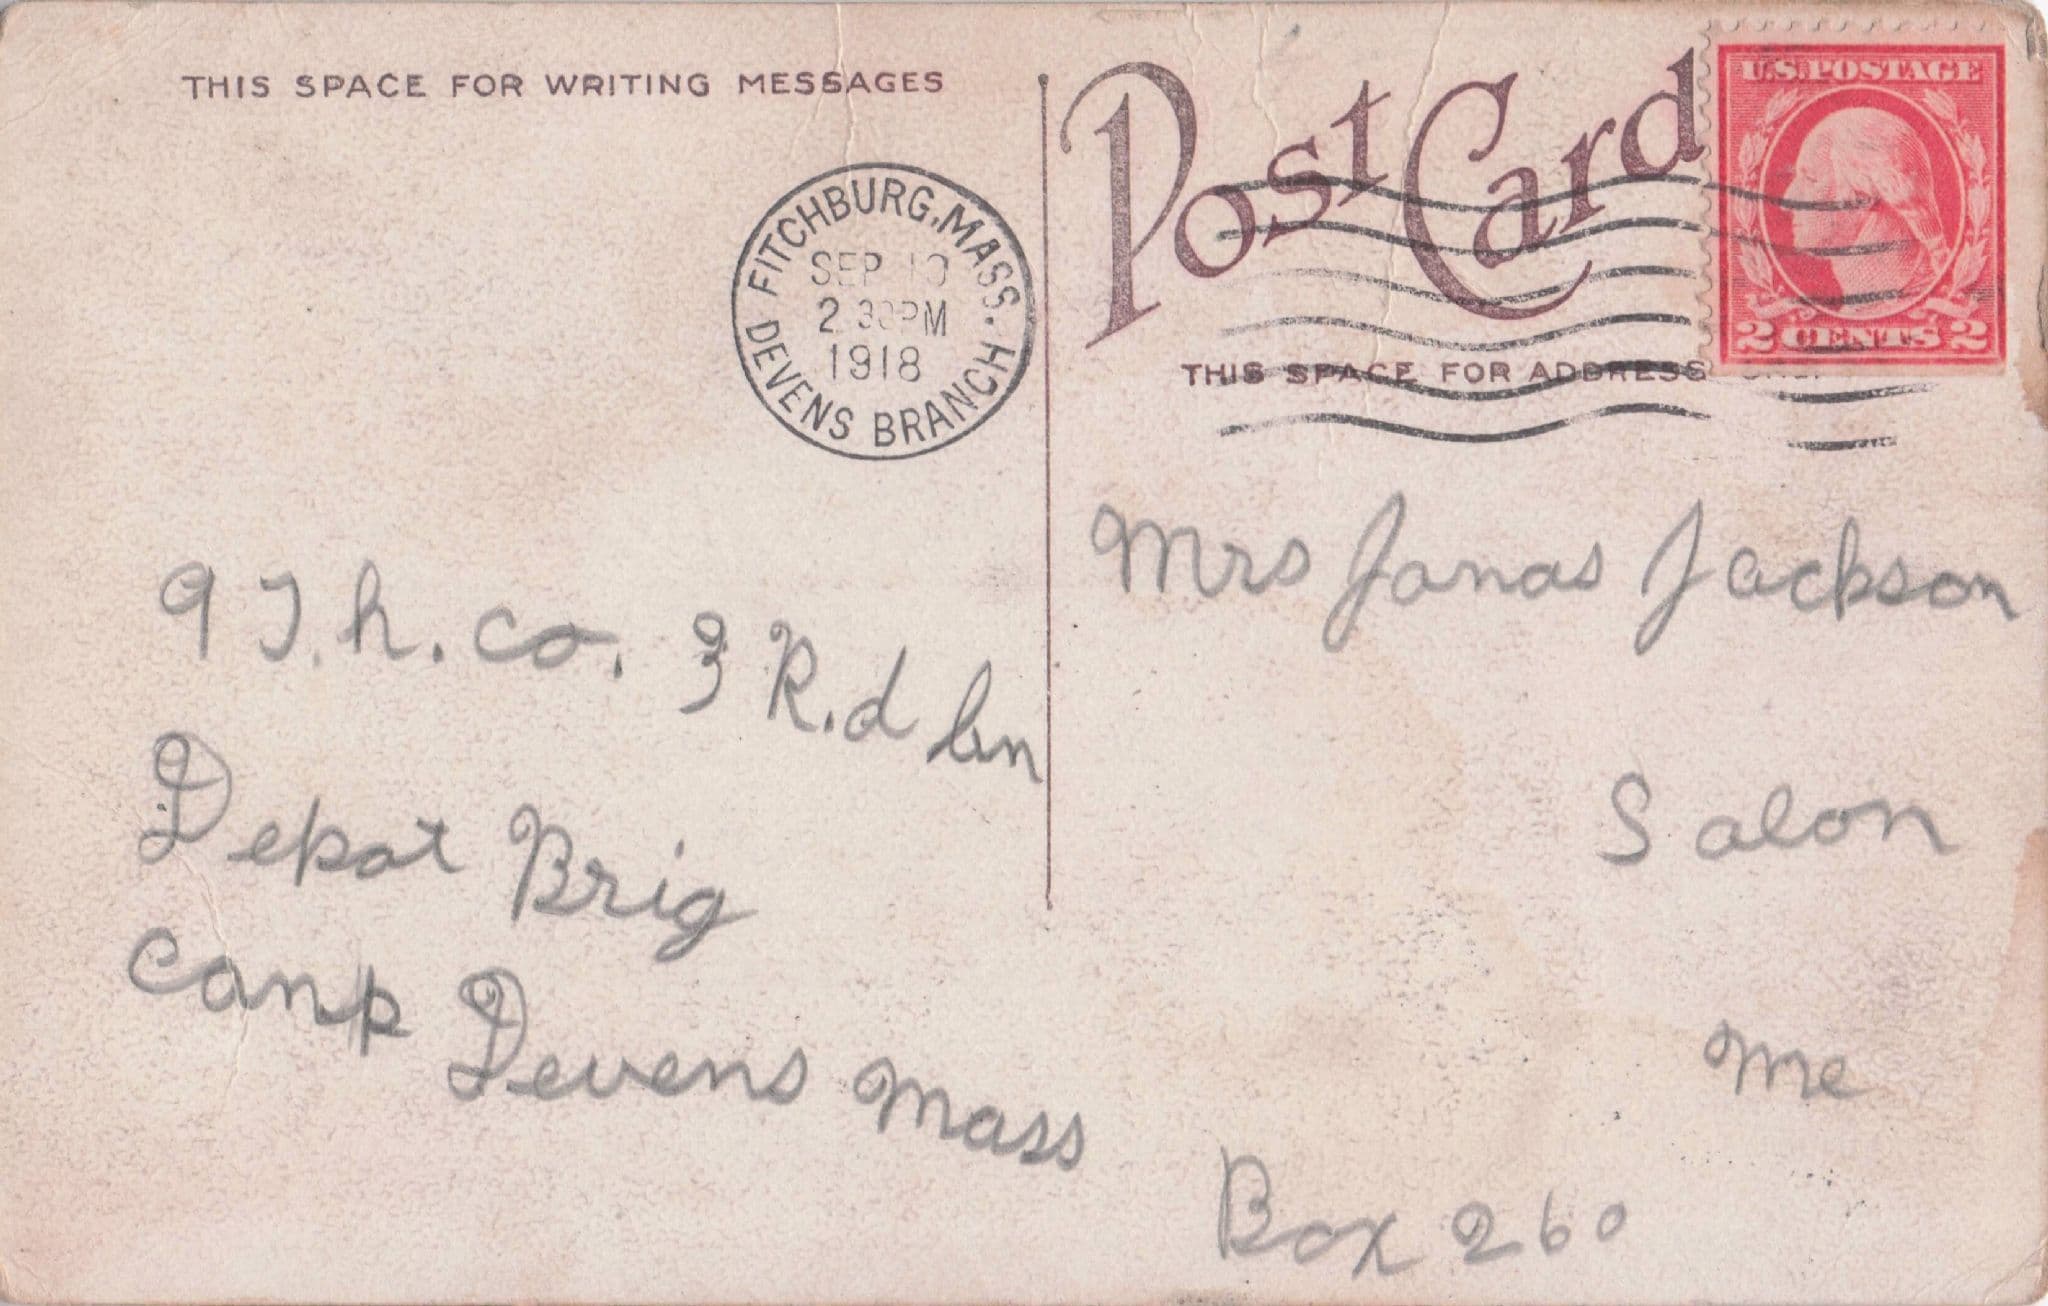 THIS SPACE FOR WRITING MESSAGES
Post Card
U.S. POSTAGE
2 CENTS 2
FITCHBURG, MASS.
SEP 10
2 30 PM
1918
DEVENS BRANCH
THIS SPACE FOR ADDRESS
9 T.h. co. 3 R.d
Depot Brig
Camp Devens Mass
Mrs Jonas Jackson
Salon
Me
Box 260